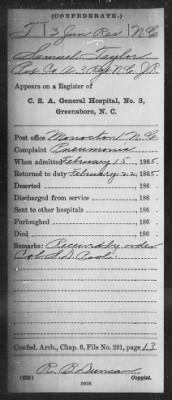 (CONFEDERATE.)
T 3 Jun Res N C
Samuel Taylor
Co. A. 3 Reg N.C. J.R.
Appears on a Register of
C. S. A. General Hospital, No. 3,
Greensboro, N. C.
Post office N.C.
Complaint Pneumonia
When admitted February 15, 1865.
Returned to duty February 22, 1865.
Deserted , 186 .
Discharged from service , 186 .
Sent to other hospitals , 186 .
Furloughed , 186 .
Died , 186 .
Remarks: Received by order
Col S.D. Pool
Confed. Arch., Chap. 6, File No. 291, page 13
R. B. Duncan
(635) Copyist.